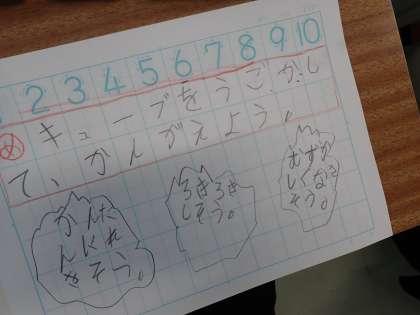 2 3 4 5 6 7 8 9 10
め キューブをうごかし
て、かんがえよう。
かんた
んにれ
きそう。
ろきろき
しそう。
むずか
しくなり
そう。